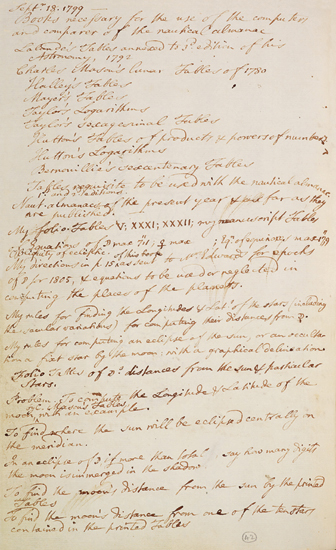 Sept. 18. 1799 —
Books necessary for the use of the computers
and comparer of the nautical almanac
Lalande's Tables annexed to 3d edition of his
Astronomy, 1792
Charles Mason's lunar Tables of 1780
Halley's Tables
Mayer's Tables
Taylor's Logarithms
Taylor's Sexagesimal Tables
Hutton's Tables of products & powers of numbers
Hutton's Logarithms
Bernouilli's Sexcentenary Tables
Tables requisite to be used with the nautical almanac
Naut. almanacs of the present year & as far as they
are published.
My folio Tables V; XXXI; XXXII; my manuscript Tables
Equations of
obliquity of ecliptic. of this book
My directions in p. 15 as sent to Mr. Edwards for epochs
of for 1805, & equations to be used or neglected in
computing the places of the planets.
My rules for finding the Longitudes & Lats. of the stars (including
the secular variations) for computing their distances from ☽.
My rules for computing an eclipse of the sun, or an occulta-
tion of a fixt star by the moon; with a graphical delineation
Folio of ☽s distances from the sun & particular
Stars.
Problem. To compute the Longitude & Latitude of the
moon by Mason's Tables with an example.
To find where the sun will be eclipsed centrally on
the meridian.
In an eclipse of ☽ if more than total, say how many digits
the moon is immerged in the shadow
To find the moon's distance from the sun by the printed
Tables
To find the moon's distance from one of the ten stars
contained in the printed Tables
62